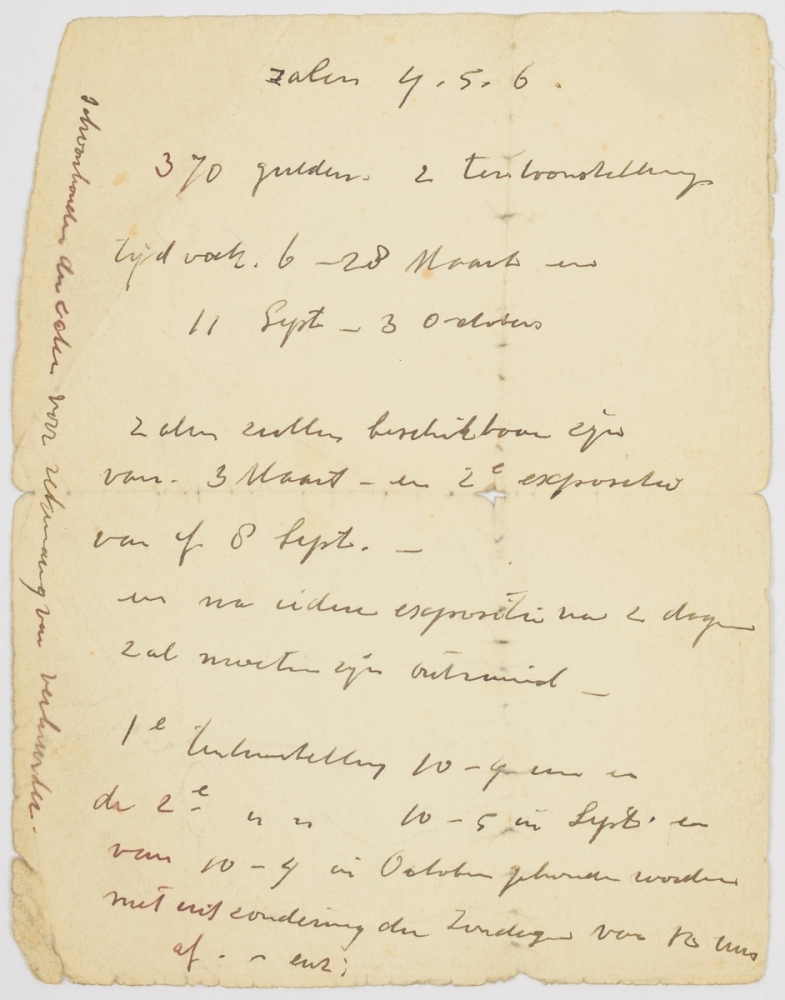 zalen 4. 5. 6.
370 gulden. 2 tentoonstellings
tijdvak. 6 – 28 Maart en
11 Sept – 3 October
Zalen zullen beschikbaar zijn
van. 3 Maart – en 2e expositie
van af 8 Sept. –
en na iedere expositie na 2 dagen
zal moeten zijn ontruimd –
1e tentoonstelling 10 – 4 uur en
de 2e " " 10 – 5 in Sept. en
van 10 – 4 in October gehouden worden
met uitzondering der Zondagen van 12 uur
af - - enz:
schoonhouden der zalen voor rekening van verhuurder.